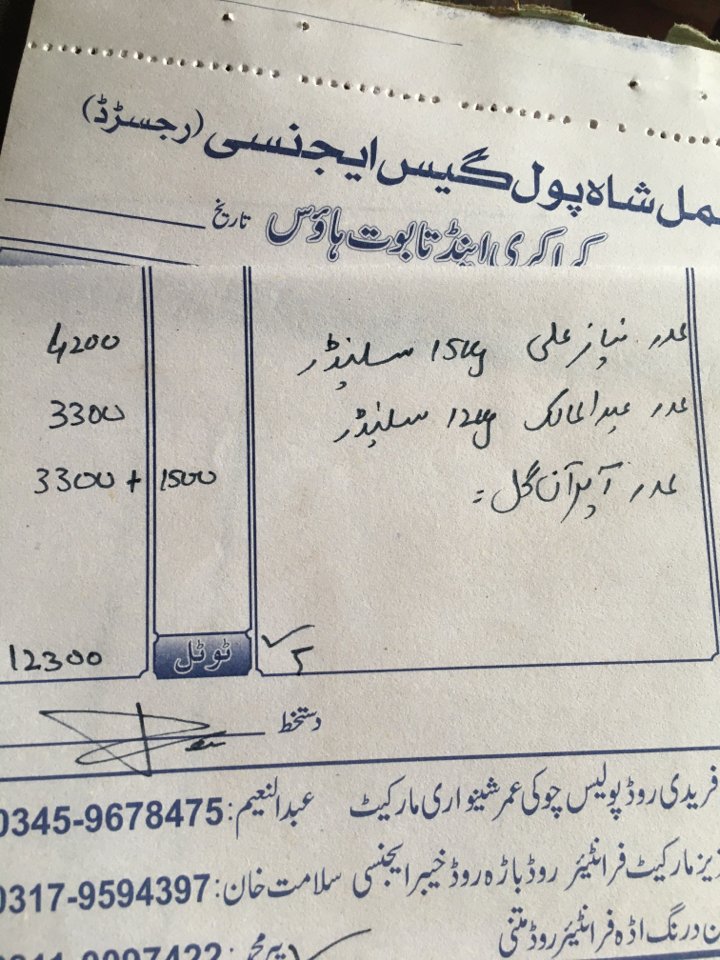 مل شاہ پول گیس ایجنسی (رجسڑڈ)
کراکری اینڈ تابوت ہاؤس تاریخ
عدد نیاز علی 15kg سلنڈر 4200
عدد عبدالمالک 12kg سلنڈر 3300
عدد گل = 1500 3300 +
ٹوٹل 12300
دستخط
فریدی روڈ پولیس چوکی عمر شینواری مارکیٹ عبدالنعیم: 0345-9678475
زیز مارکیٹ فرانٹیئر روڈ باڑہ روڈ خیبر ایجنسی سلامت خان: 0317-9594397
ن درنگ اڈہ فرانٹیئر روڈ متنی پیر محمد: